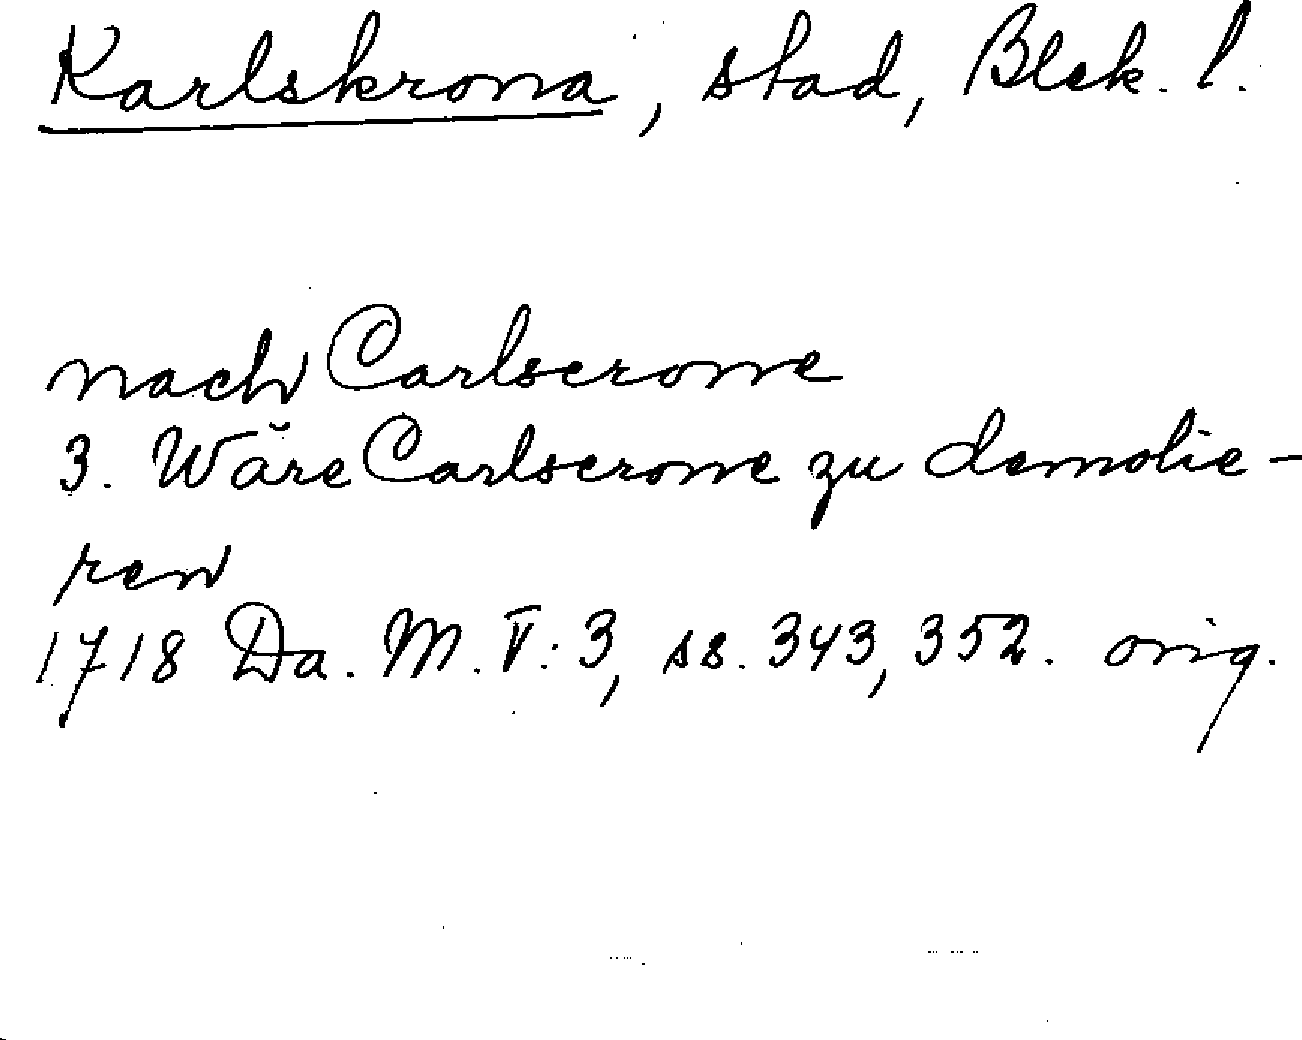 Karlskrona, stad, Blek. l.
nach Carlscrone
3. Wäre Carlscrone zu demolie-
ren
1718 Da. M. V: 3, ss. 343, 352. orig.